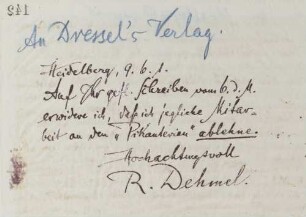 142
An Dressel's Verlag.
Heidelberg, 9. 6. 1.
Auf Ihr gefl. Schreiben vom 6. d. M.
erwidere ich, daß ich jegliche Mitar-
beit an den „Pikanterien" ablehne.
Hochachtungsvoll
R. Dehmel.